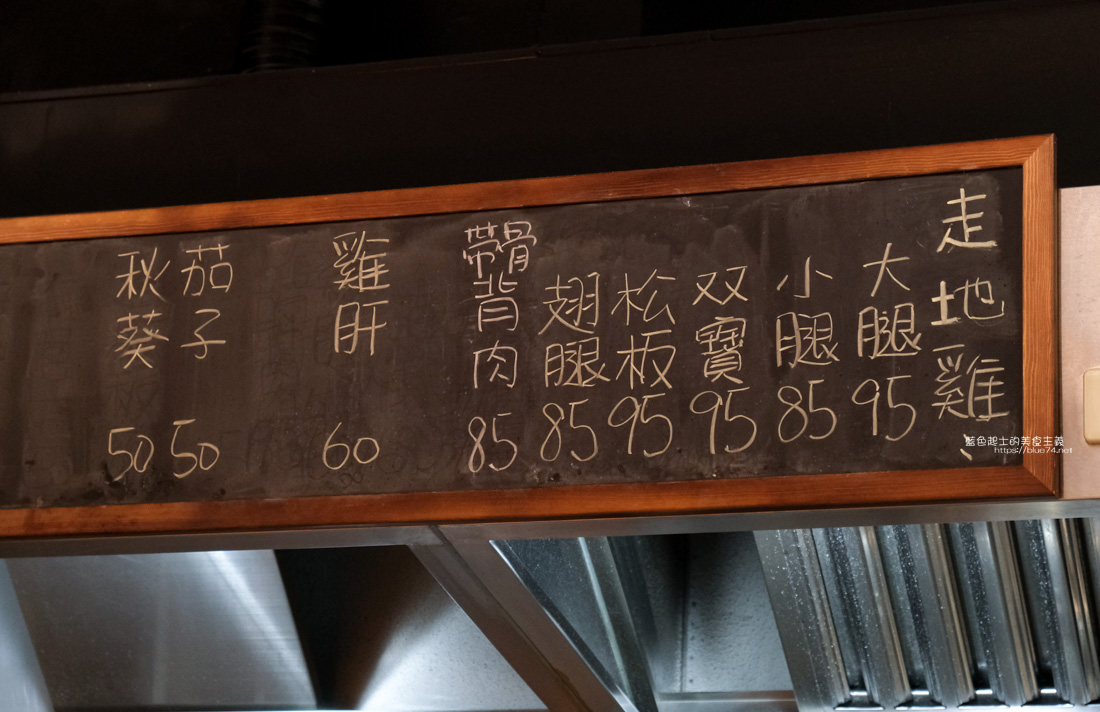 走地雞
大腿95
小腿85
双寶95
松板95
翅腿85
帶骨背肉85
雞肝60
茄子50
秋葵50
藍色起士的美食主義
https://blue74.net